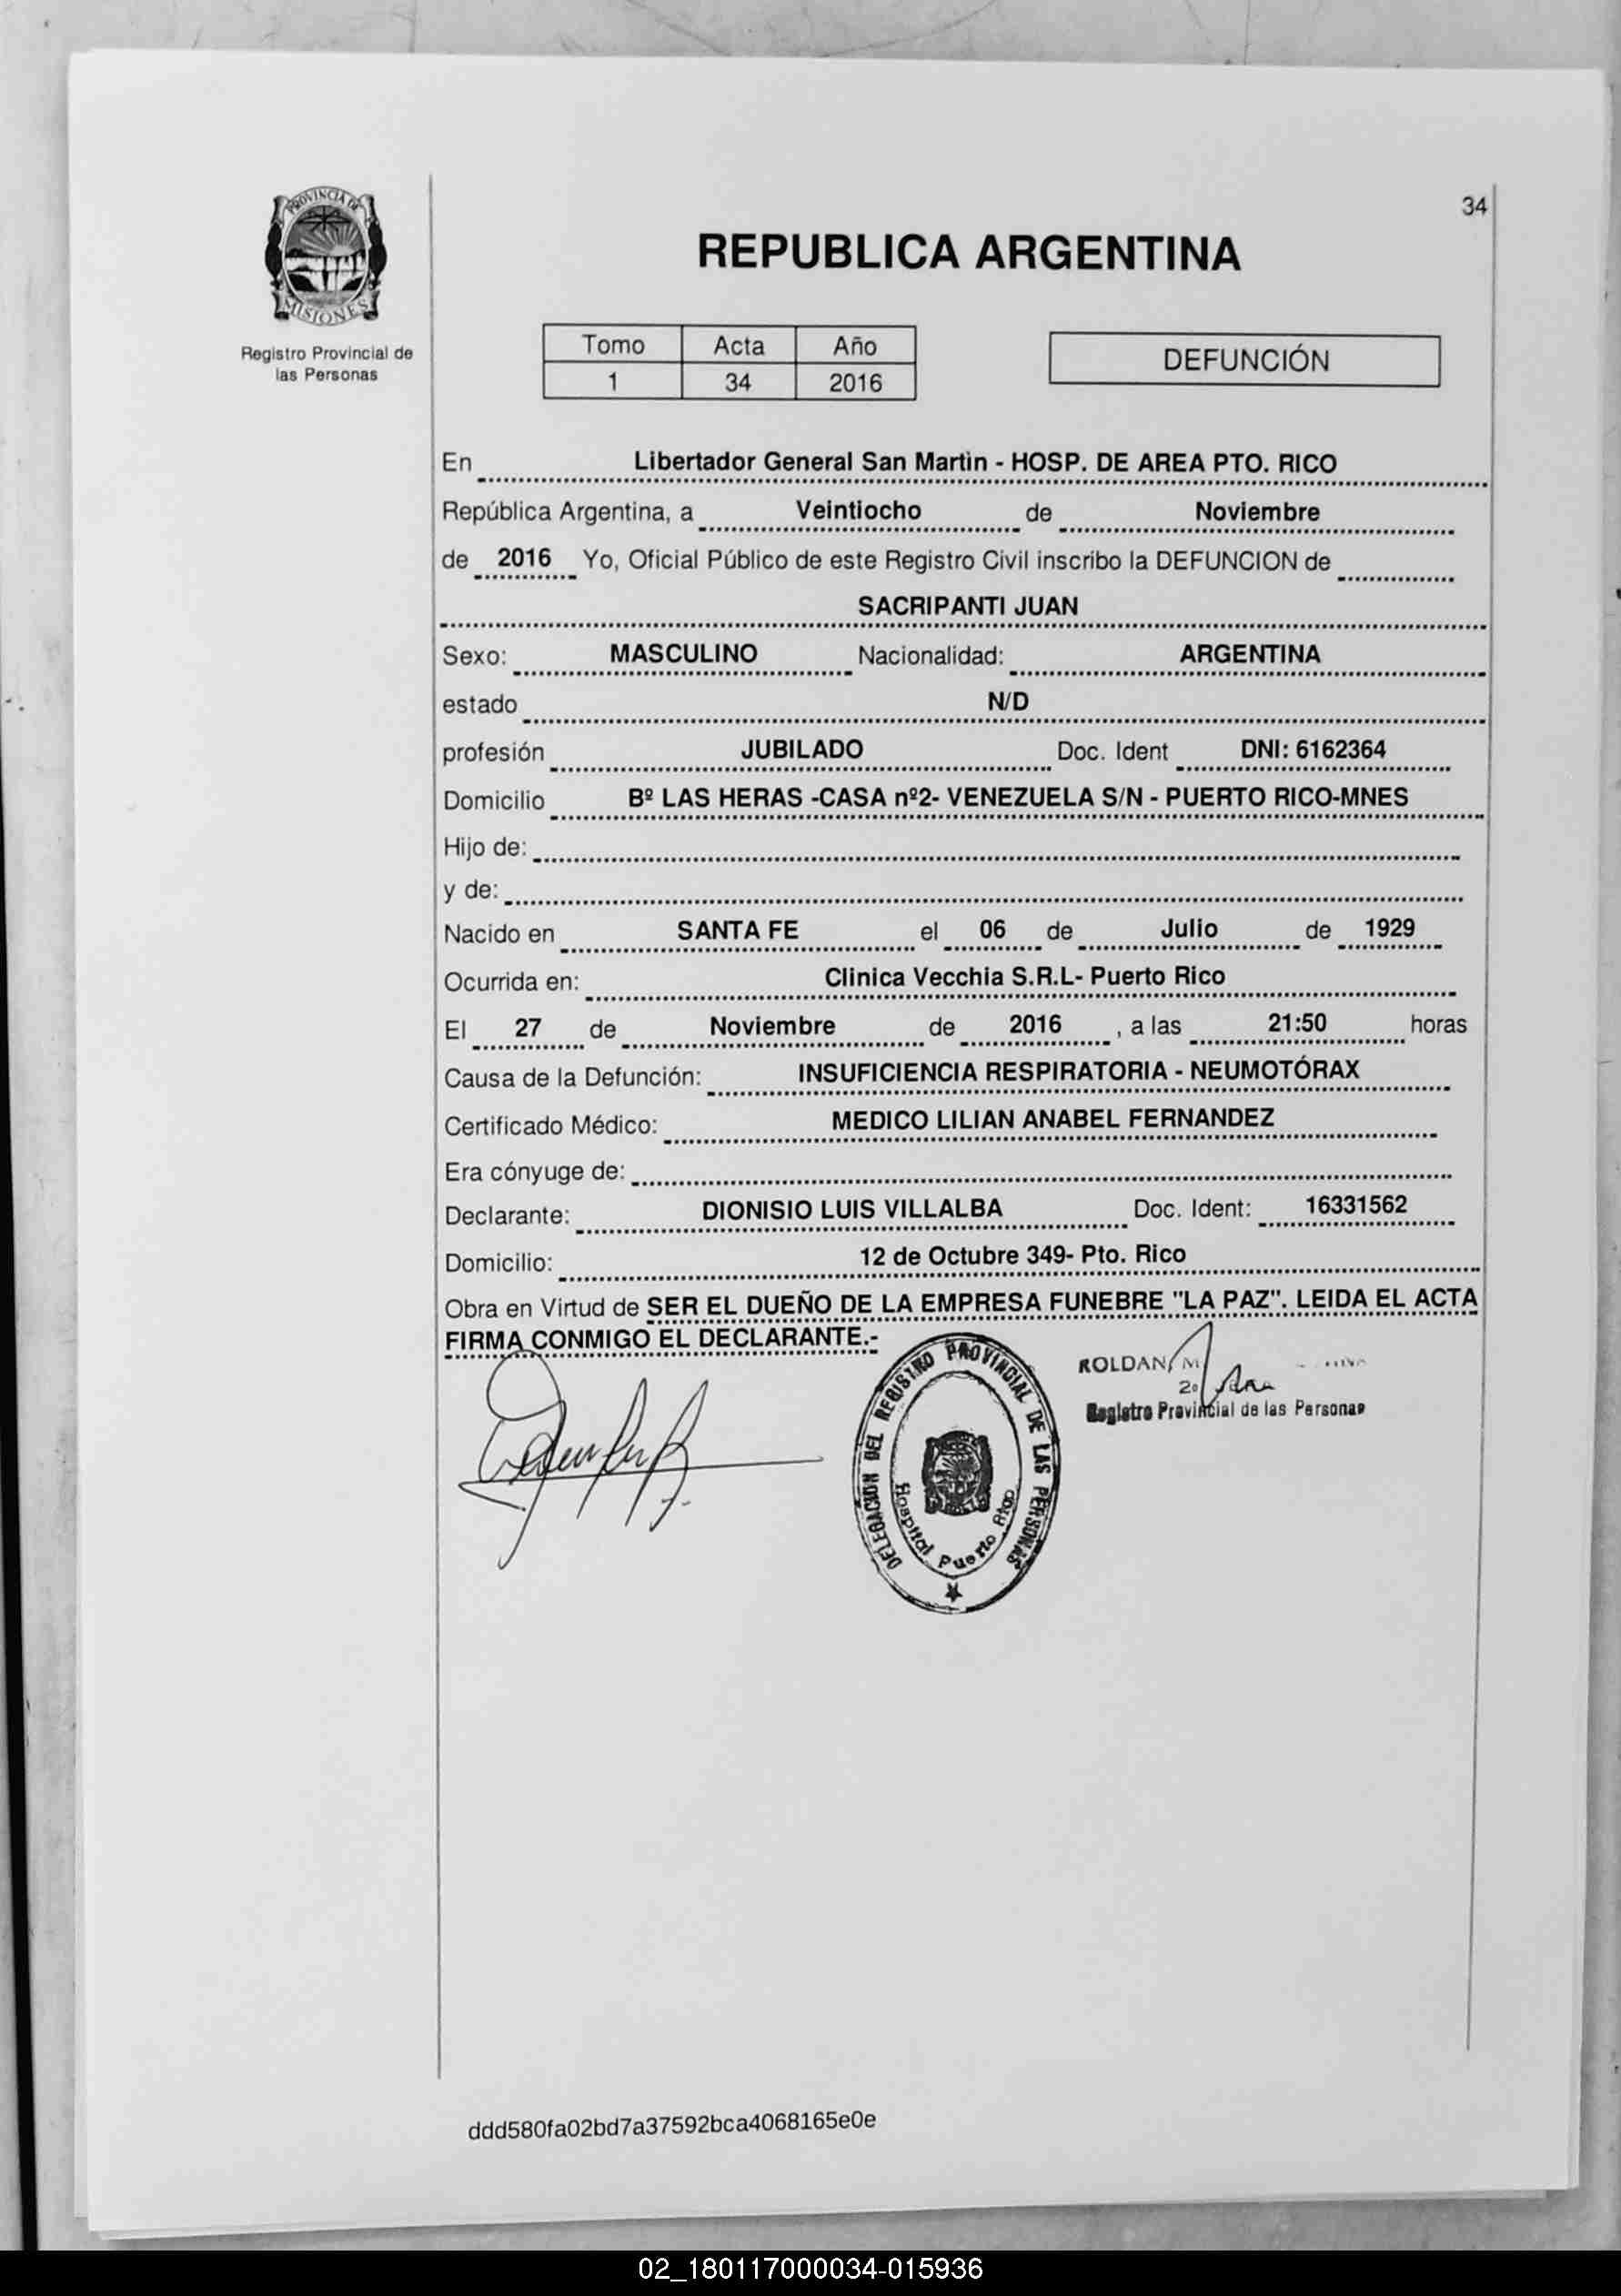 34
PROVINCIA DE
MISIONES
Registro Provincial de
las Personas
REPUBLICA ARGENTINA
Tomo Acta Año
1 34 2016
DEFUNCIÓN
En Libertador General San Martin - HOSP. DE AREA PTO. RICO
República Argentina, a Veintiocho de Noviembre
de 2016 Yo, Oficial Público de este Registro Civil inscribo la DEFUNCION de
SACRIPANTI JUAN
Sexo: MASCULINO Nacionalidad: ARGENTINA
estado N/D
profesión JUBILADO Doc. Ident DNI: 6162364
Domicilio Bº LAS HERAS -CASA nº2- VENEZUELA S/N - PUERTO RICO-MNES
Hijo de:
y de:
Nacido en SANTA FE el 06 de Julio de 1929
Ocurrida en: Clinica Vecchia S.R.L- Puerto Rico
El 27 de Noviembre de 2016 , a las 21:50 horas
Causa de la Defunción: INSUFICIENCIA RESPIRATORIA - NEUMOTÓRAX
Certificado Médico: MEDICO LILIAN ANABEL FERNANDEZ
Era cónyuge de:
Declarante: DIONISIO LUIS VILLALBA Doc. Ident: 16331562
Domicilio: 12 de Octubre 349- Pto. Rico
Obra en Virtud de SER EL DUEÑO DE LA EMPRESA FUNEBRE "LA PAZ". LEIDA EL ACTA
FIRMA CONMIGO EL DECLARANTE.-
DELEGACION DEL REGISTRO PROVINCIAL DE LAS PERSONAS
Hospital Puerto Rico
ROLDAN
Registro Provincial de las Personas
ddd580fa02bd7a37592bca4068165e0e
02_180117000034-015936